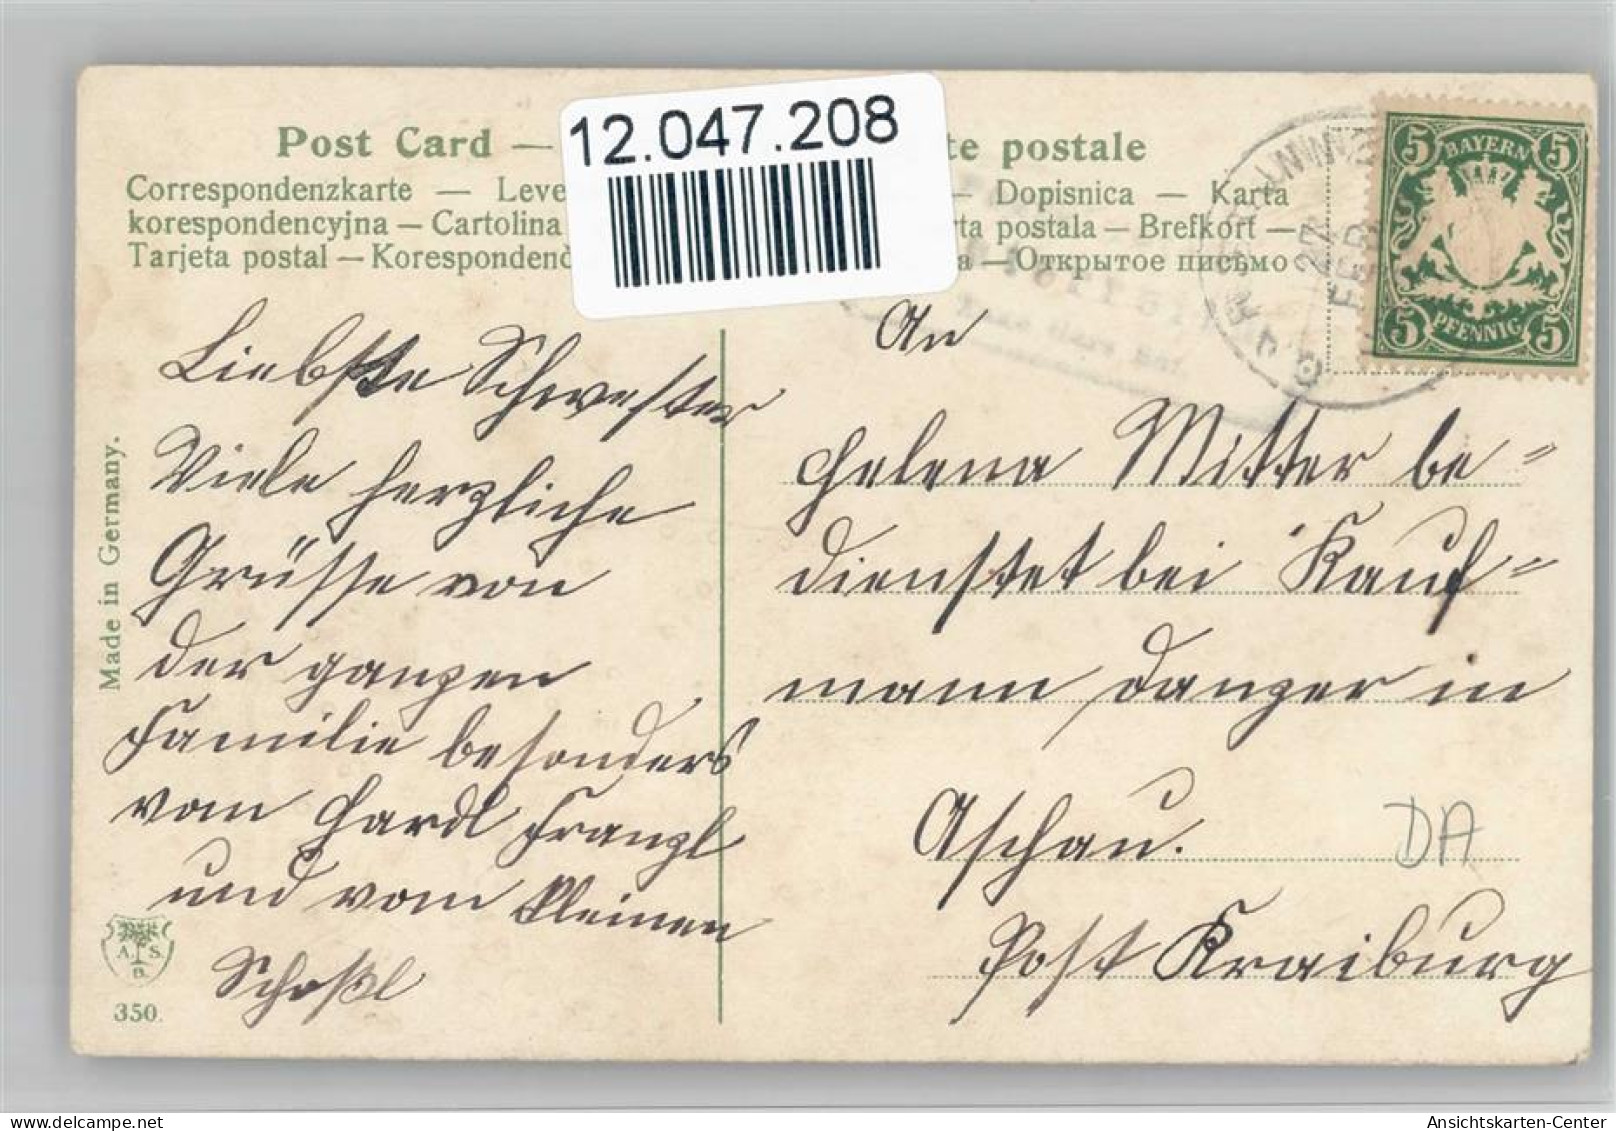 12.047.208
Post Card — te postale
Correspondenzkarte — Leve — Dopisnica — Karta
korespondencyjna — Cartolina rta postala — Brefkort —
Tarjeta postal — Korespondenč a — Открытое письмо
27
FEB
BAYERN
5 5
5 5
PFENNIG
Liebste Schwester
Viele herzliche
Grüsse von
der ganzen
Familie besonders
vom Hardl Franzl
und vom kleinen
Schoßl
An
Helena Mitter be=
dienstet bei Kauf=
mann Danzer in
Aschau.
Post Kraiburg
DA
Made in Germany.
A. S.
B.
350.
Ansichtskarten-Center